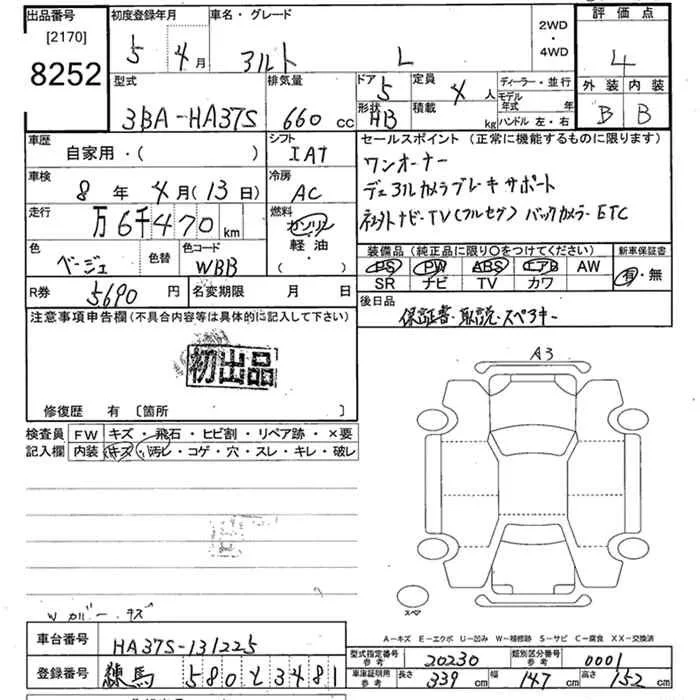 出品番号 初度登録年月 車名・グレード 2WD・4WD 評価点
[2170]
8252
5 4月 アルト L 4
型式 排気量 ドア 定員 ディーラー・並行 外装 内装
3BA-HA37S 660cc 5 4人 モデル年式 年 B B
形状 HB 積載 kg ハンドル 左・右
車歴 シフト セールスポイント(正常に機能するものに限ります)
自家用・( ) IAT ワンオーナー
車検 冷房
8年4月(13日) AC デュアルカメラブレーキサポート
走行 燃料
万6千470km ガソリン 軽油・( ) ナビ・TV(フルセグ)バックカメラ・ETC
色 色替 色コード 装備品(純正品に限り〇をつけてください) 新車保証書
ベージュ WBB PS PW ABS エアB AW 有・無
SR ナビ TV カワ
R券 5690円 名変期限 月 日 後日品
保証書・取説・スペアキー
注意事項申告欄(不具合内容等は具体的に記入して下さい)
初出品
修復歴 有 [箇所 ]
A3
検査員記入欄 FW キズ・飛石・ヒビ割・リペア跡・×要
内装 キズ・汚レ・コゲ・穴・スレ・キレ・破レ
スペア
A-キズ E-エクボ U-凹み W-補修跡 S-サビ C-腐食 XX-交換済
車台番号 HA37S-131225
型式指定番号 参考 20230 類別区分番号 参考 0001
登録番号 練馬 580 と 3481
車庫証明用 参考 長さ 339cm 幅 147cm 高さ 152cm